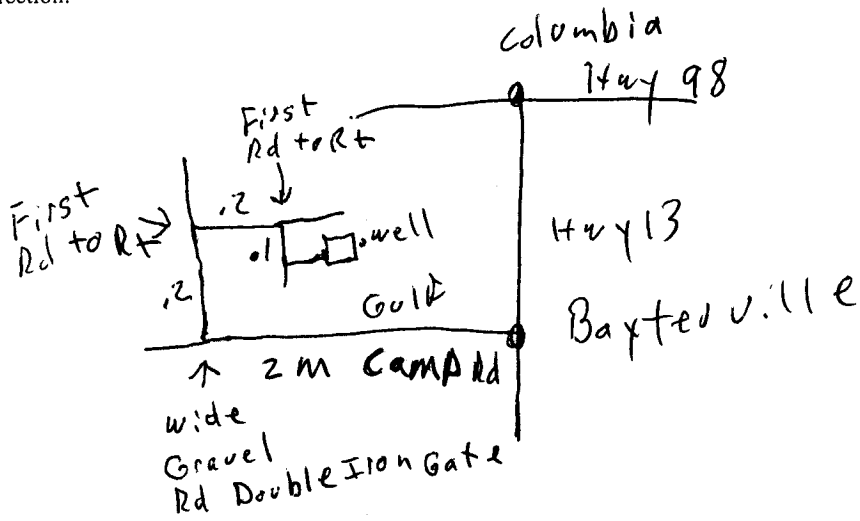 rection.
Columbia
Hwy 98
First
Rd to Rt
First
Rd to Rt
.2
.1
.well
Hwy 13
.2
Gulf
Baxterville
2 m Camp Rd
wide
Gravel
Rd Double Iron Gate